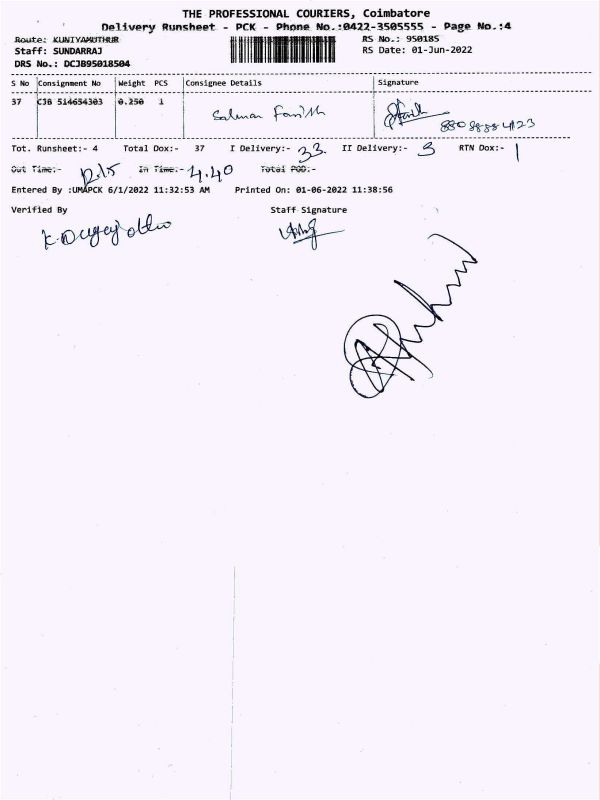 THE PROFESSIONAL COURIERS, Coimbatore
Delivery Runsheet - PCK - Phone No.:0422-3505555 - Page No.:4
Route: KUNIYAMUTHUR RS No.: 950185
Staff: SUNDARRAJ RS Date: 01-Jun-2022
DRS No.: DCJB95018504
S No Consignment No Weight PCS Consignee Details Signature
37 CJB 514654303 0.250 1 Salman
Tot. Runsheet:- 4 Total Dox:- 37 I Delivery:- 33 II Delivery:- 3 RTN Dox:- 1
Out Time:- 12.15 In Time:- 4.40 Total POD:-
Entered By :UMAPCK 6/1/2022 11:32:53 AM Printed On: 01-06-2022 11:38:56
Verified By Staff Signature